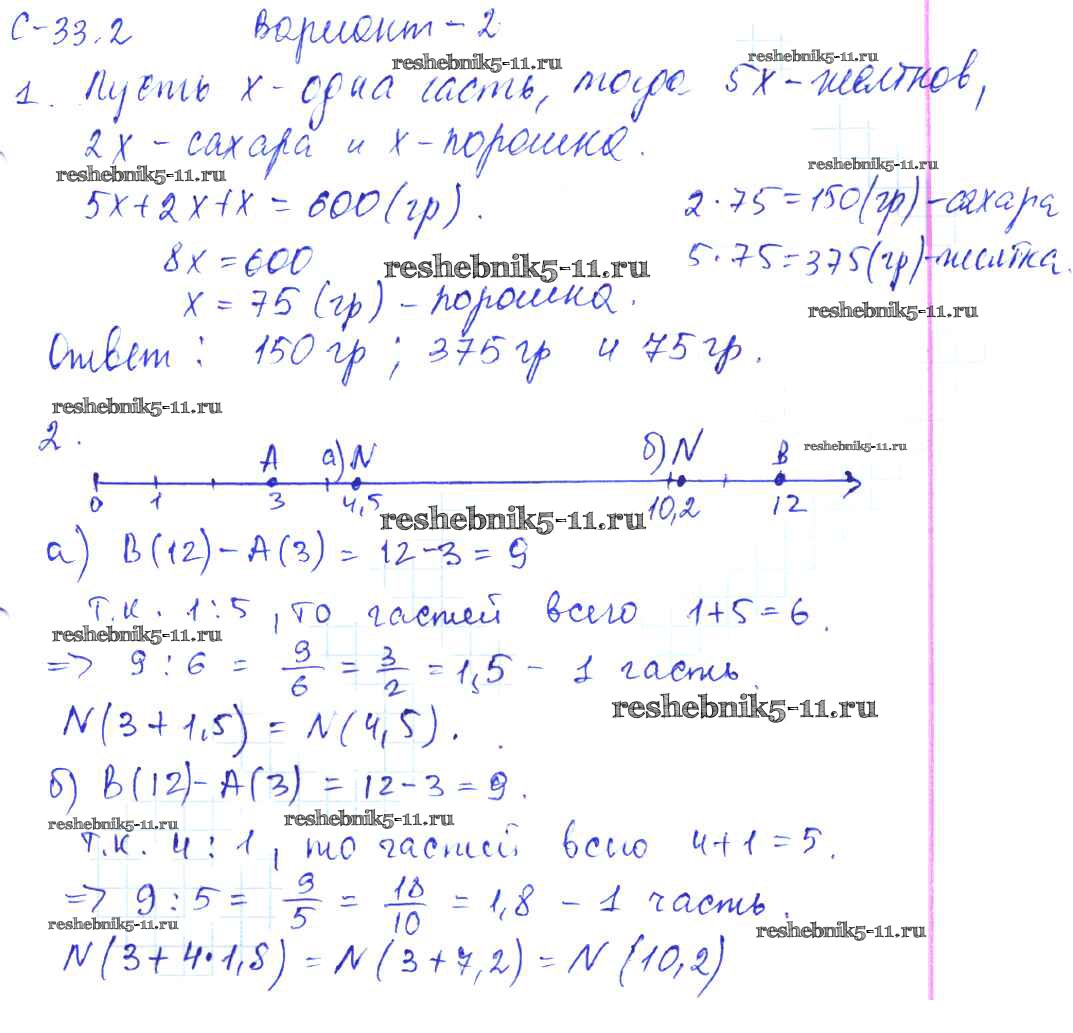 С-33.2 Вариант - 2
reshebnik5-11.ru reshebnik5-11.ru
1. Пусть x - одна часть, тогда 5x - желтков,
2x - сахара и x - порошка.
reshebnik5-11.ru reshebnik5-11.ru
5x+2x+x = 600 (гр). 2·75=150(гр) - сахара
8x = 600 reshebnik5-11.ru 5·75=375(гр) - желтка.
x = 75 (гр) - порошка. reshebnik5-11.ru
Ответ: 150 гр; 375 гр и 75 гр.
reshebnik5-11.ru
2. reshebnik5-11.ru
A а) N б) N B
0 1 3 4,5 10,2 12
reshebnik5-11.ru
а) B(12) - A(3) = 12 - 3 = 9
т.к. 1:5, то частей всего 1+5=6.
reshebnik5-11.ru
=> 9:6 = 9/6 = 3/2 = 1,5 - 1 часть.
reshebnik5-11.ru
N(3+1,5) = N(4,5).
б) B(12) - A(3) = 12 - 3 = 9.
reshebnik5-11.ru reshebnik5-11.ru
т.к. 4:1, то частей всего 4+1=5.
=> 9:5 = 9/5 = 18/10 = 1,8 - 1 часть.
reshebnik5-11.ru reshebnik5-11.ru
N(3+4·1,8) = N(3+7,2) = N(10,2)